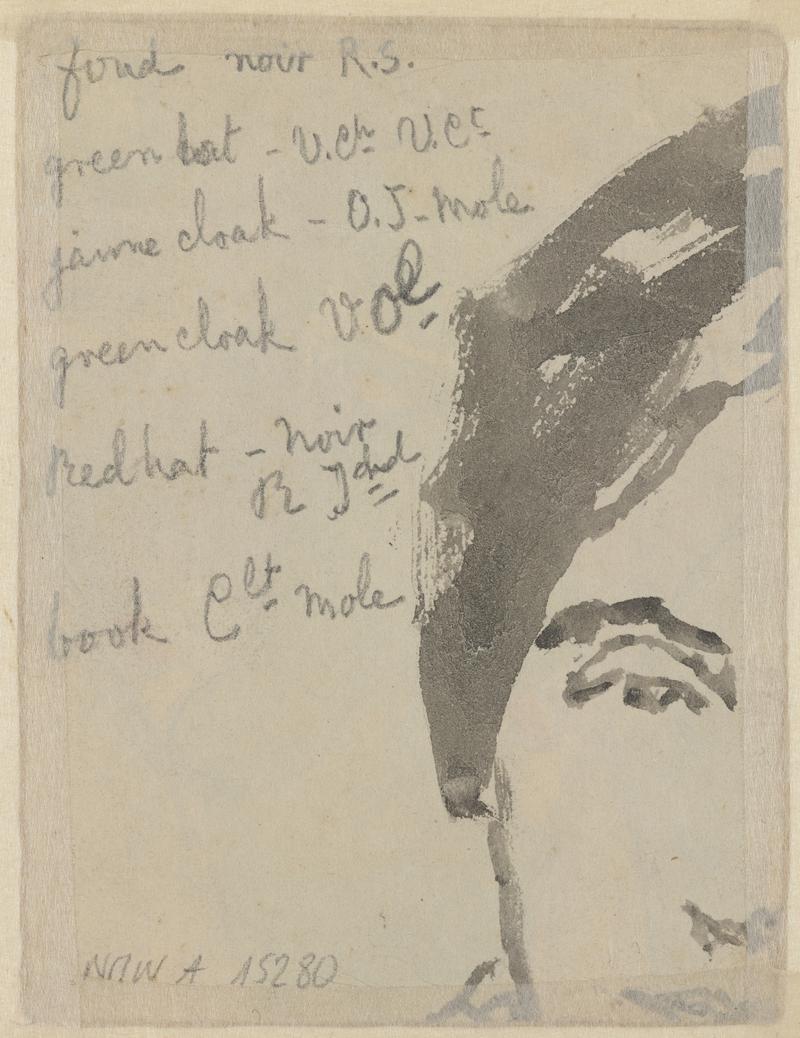 fond noir R.S.
green hat - V.Ch V.Ct
jaune cloak - O.J - mole
green cloak Vol
Red hat - noir
R
book Clt mole
NMW A 15280